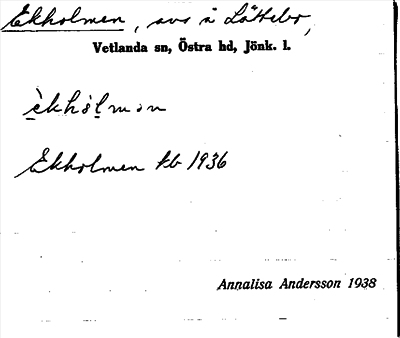 Ekholmen, avs å Lättebo,
Vetlanda sn, Östra hd, Jönk. l.
èkhòlmən
Ekholmen kb 1936
Annalisa Andersson 1938